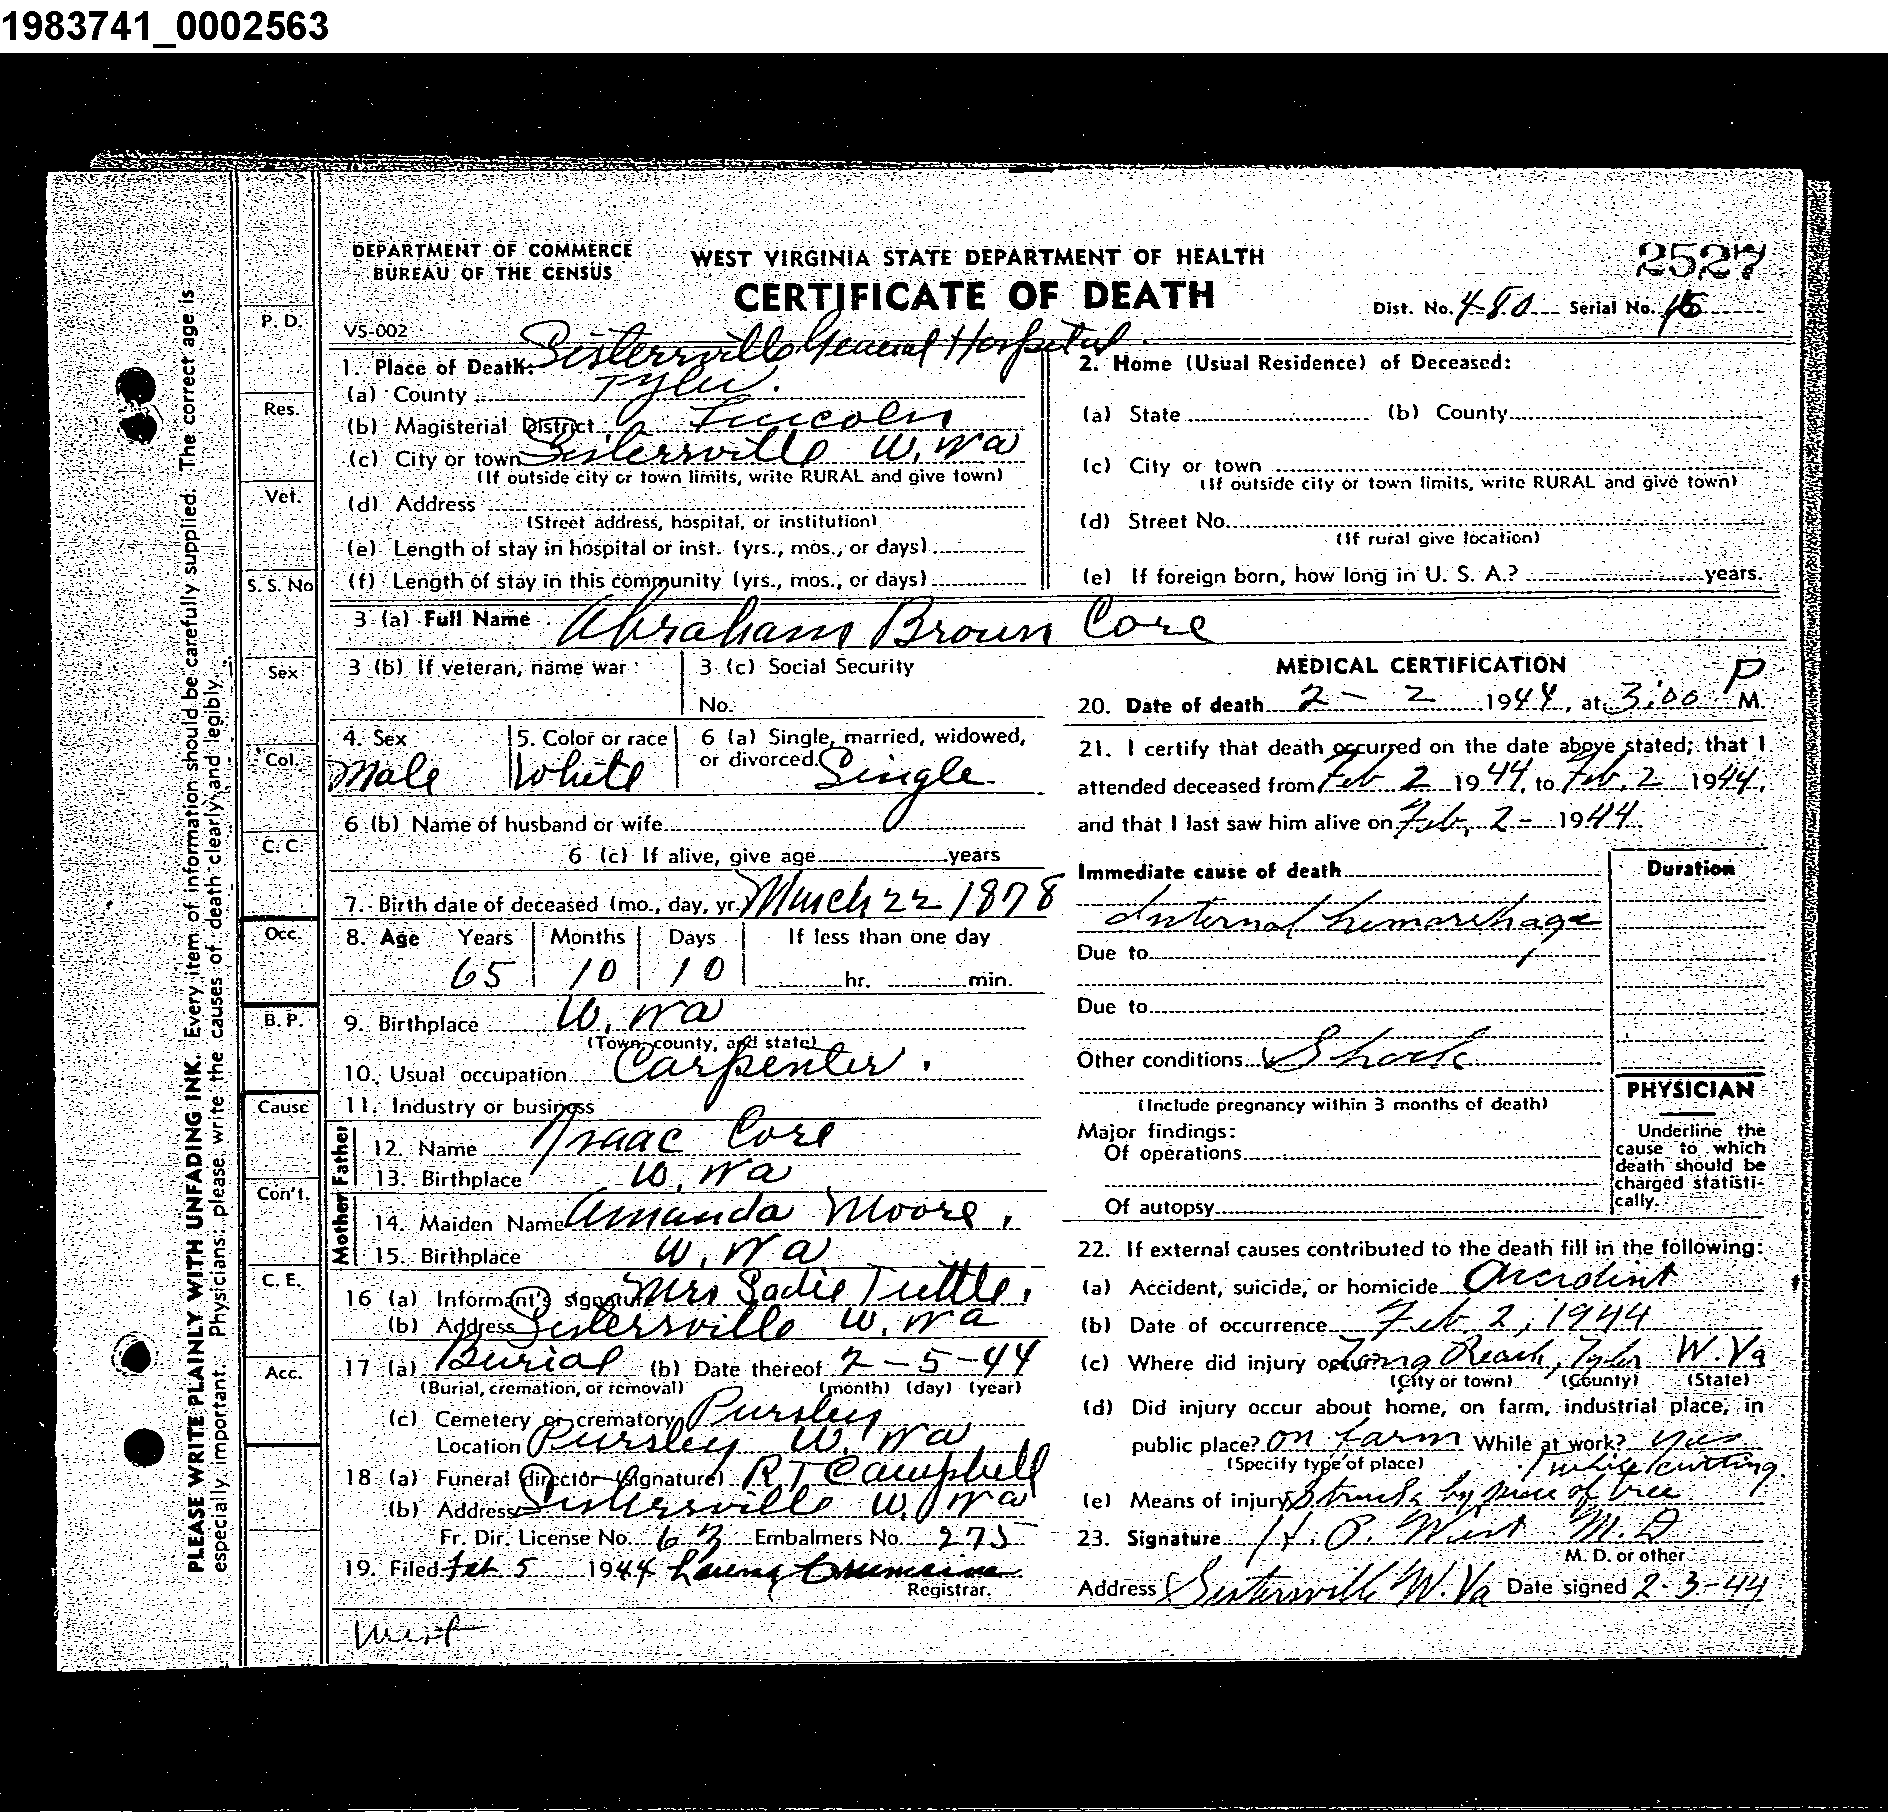 1983741_0002563
DEPARTMENT OF COMMERCE
BUREAU OF THE CENSUS
WEST VIRGINIA STATE DEPARTMENT OF HEALTH
CERTIFICATE OF DEATH
2527
Dist. No. 480 Serial No. 15
VS-002
PLEASE WRITE PLAINLY WITH UNFADING INK. Every item of information should be carefully supplied. The correct age is
especially important. Physicians: please write the causes of death clearly and legibly.
P. D.
Res.
Vet.
S. S. No
Sex
Col.
C. C.
Occ.
B. P.
Cause
Con't.
C. E.
Acc.
1. Place of Death: Sistersville General Hospital
(a) County Tyler.
(b) Magisterial District Lincoln
(c) City or town Sistersville W. Va
(If outside city or town limits, write RURAL and give town)
(d) Address
(Street address, hospital, or institution)
(e) Length of stay in hospital or inst. (yrs., mos., or days)
(f) Length of stay in this community (yrs., mos., or days)
2. Home (Usual Residence) of Deceased:
(a) State (b) County
(c) City or town
(If outside city or town limits, write RURAL and give town)
(d) Street No.
(If rural give location)
(e) If foreign born, how long in U. S. A.? years.
3 (a) Full Name Abraham Brown Core
3 (b) If veteran, name war
3 (c) Social Security
No.
4. Sex Male
5. Color or race White
6 (a) Single, married, widowed,
or divorced. Single
6 (b) Name of husband or wife
6 (c) If alive, give age years
7. Birth date of deceased (mo., day, yr.) March 22 1878
8. Age Years Months Days If less than one day
65 10 10 hr. min.
9. Birthplace W. Va
(Town, county, and state)
10. Usual occupation Carpenter.
11. Industry or business
Father
12. Name Isaac Core
13. Birthplace W. Va
Mother
14. Maiden Name Amanda Moore,
15. Birthplace W. Va
16 (a) Informant's signature Mrs Sadie Tuttle,
(b) Address Sistersville W. Va
17 (a) Burial (b) Date thereof 2-5-44
(Burial, cremation, or removal) (month) (day) (year)
(c) Cemetery or crematory Pursley
Location Pursley W. Va
18 (a) Funeral director (signature) R T Campbell
(b) Address Sistersville W. Va
Fr. Dir. License No. 63 Embalmers No. 275
19. Filed Feb 5 1944
Registrar.
MEDICAL CERTIFICATION
20. Date of death 2 - 2 1944, at 3:00 P M.
21. I certify that death occurred on the date above stated; that I
attended deceased from Feb 2 1944, to Feb. 2 1944,
and that I last saw him alive on Feb. 2 - 1944
Immediate cause of death
Duration
Internal hemorrhage
Due to
Due to
Other conditions Shock
(Include pregnancy within 3 months of death)
Major findings:
Of operations
Of autopsy
PHYSICIAN
Underline the
cause to which
death should be
charged statisti-
cally.
22. If external causes contributed to the death fill in the following:
(a) Accident, suicide, or homicide Accident
(b) Date of occurrence Feb. 2, 1944
(c) Where did injury occur? Long Reach, Tyler W. Va
(City or town) (County) (State)
(d) Did injury occur about home, on farm, industrial place, in
public place? on farm While at work? yes
(Specify type of place) while cutting.
(e) Means of injury Struck by piece of tree
23. Signature H. P. West M. D
M. D. or other
Address Sistersville W. Va Date signed 2-3-44
West